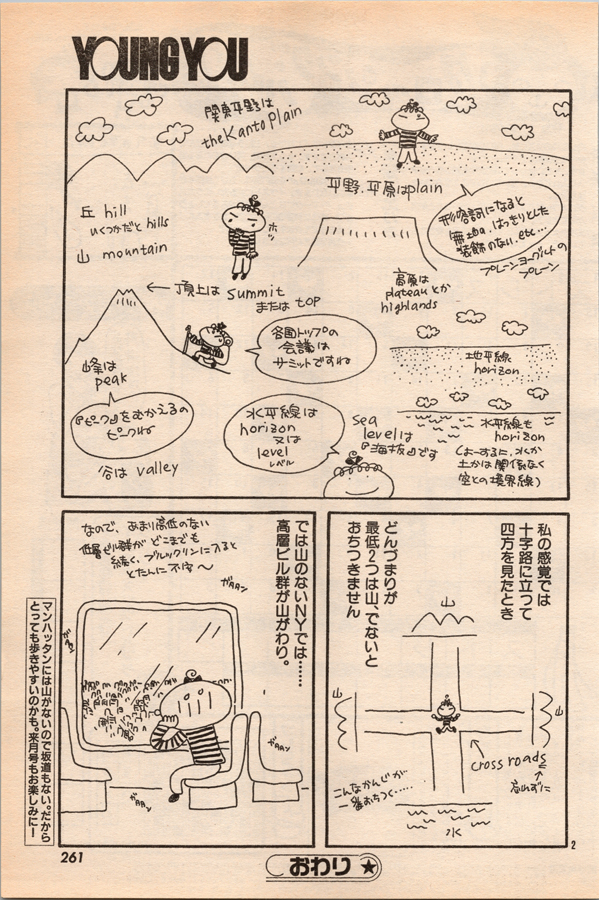 YOUNG YOU
関東平野は
the Kanto Plain
平野.平原はplain
形容詞になると
無地の、はっきりとした
装飾のない.etc…
プレーンヨーグルトの
プレーン
丘 hill
いくつかだと hills
山 mountain
ホッ
頂上は summit
または top
高原は
plateau とか
highlands
各国トップの
会議は
サミットですね
峰は
peak
『ピーク』をむかえるの
ピークね
谷は valley
地平線
horizon
水平線は
horizon
又は
level
レベル
sea
levelは
『海抜』です
水平線も
horizon
(よーするに、水か
土かは関係なく
空との境界線)
私の感覚では
十字路に立って
四方を見たとき
どんづまりが
最低2つは山、でないと
おちつきません
山
山
山
cross roads
忘れずに
こんなかんじが
一番おちつく……
水
2
では山のないNYでは……
高層ビル群が山がわり。
なので、あまり高低のない
低層ビル群がどこまでも
続く、ブルックリンに入ると
とたんに不安～
ガAAン
ガAAン
ガAAン
ガAAン
マンハッタンには山がないので坂道もない。だから
とっても歩きやすいのかも。来月号もお楽しみに！
261
おわり★